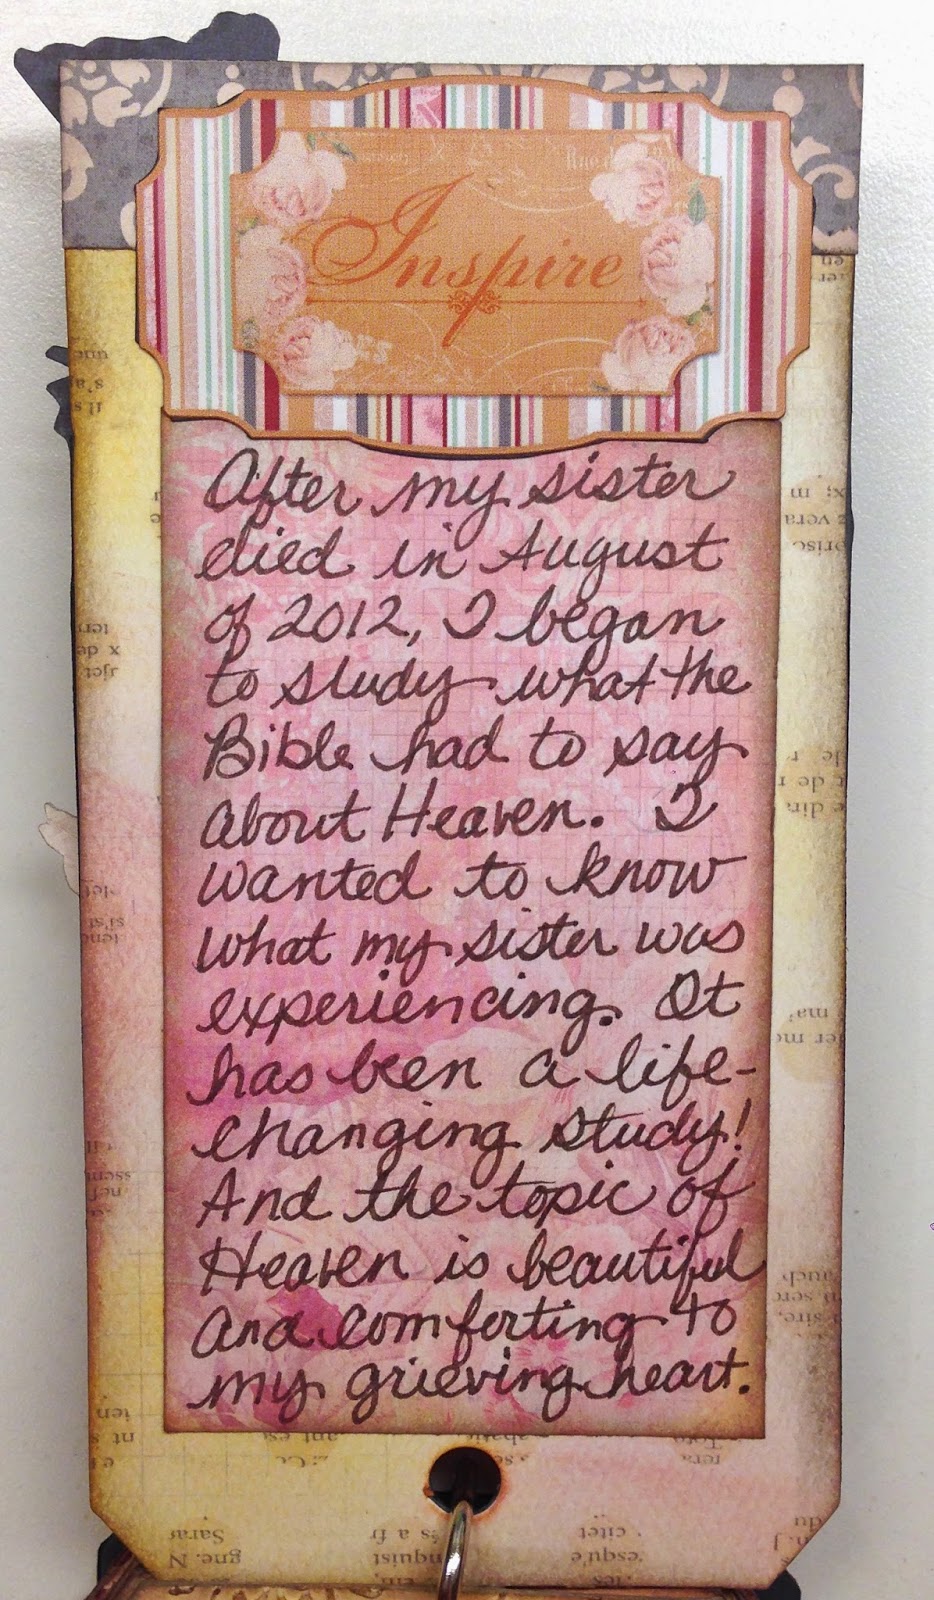 Inspire
After my sister
died in August
of 2012, I began
to study what the
Bible had to say
about Heaven. I
wanted to know
what my sister was
experiencing. It
has been a life-
changing study!
And the topic of
Heaven is beautiful
and comforting to
my grieving heart.